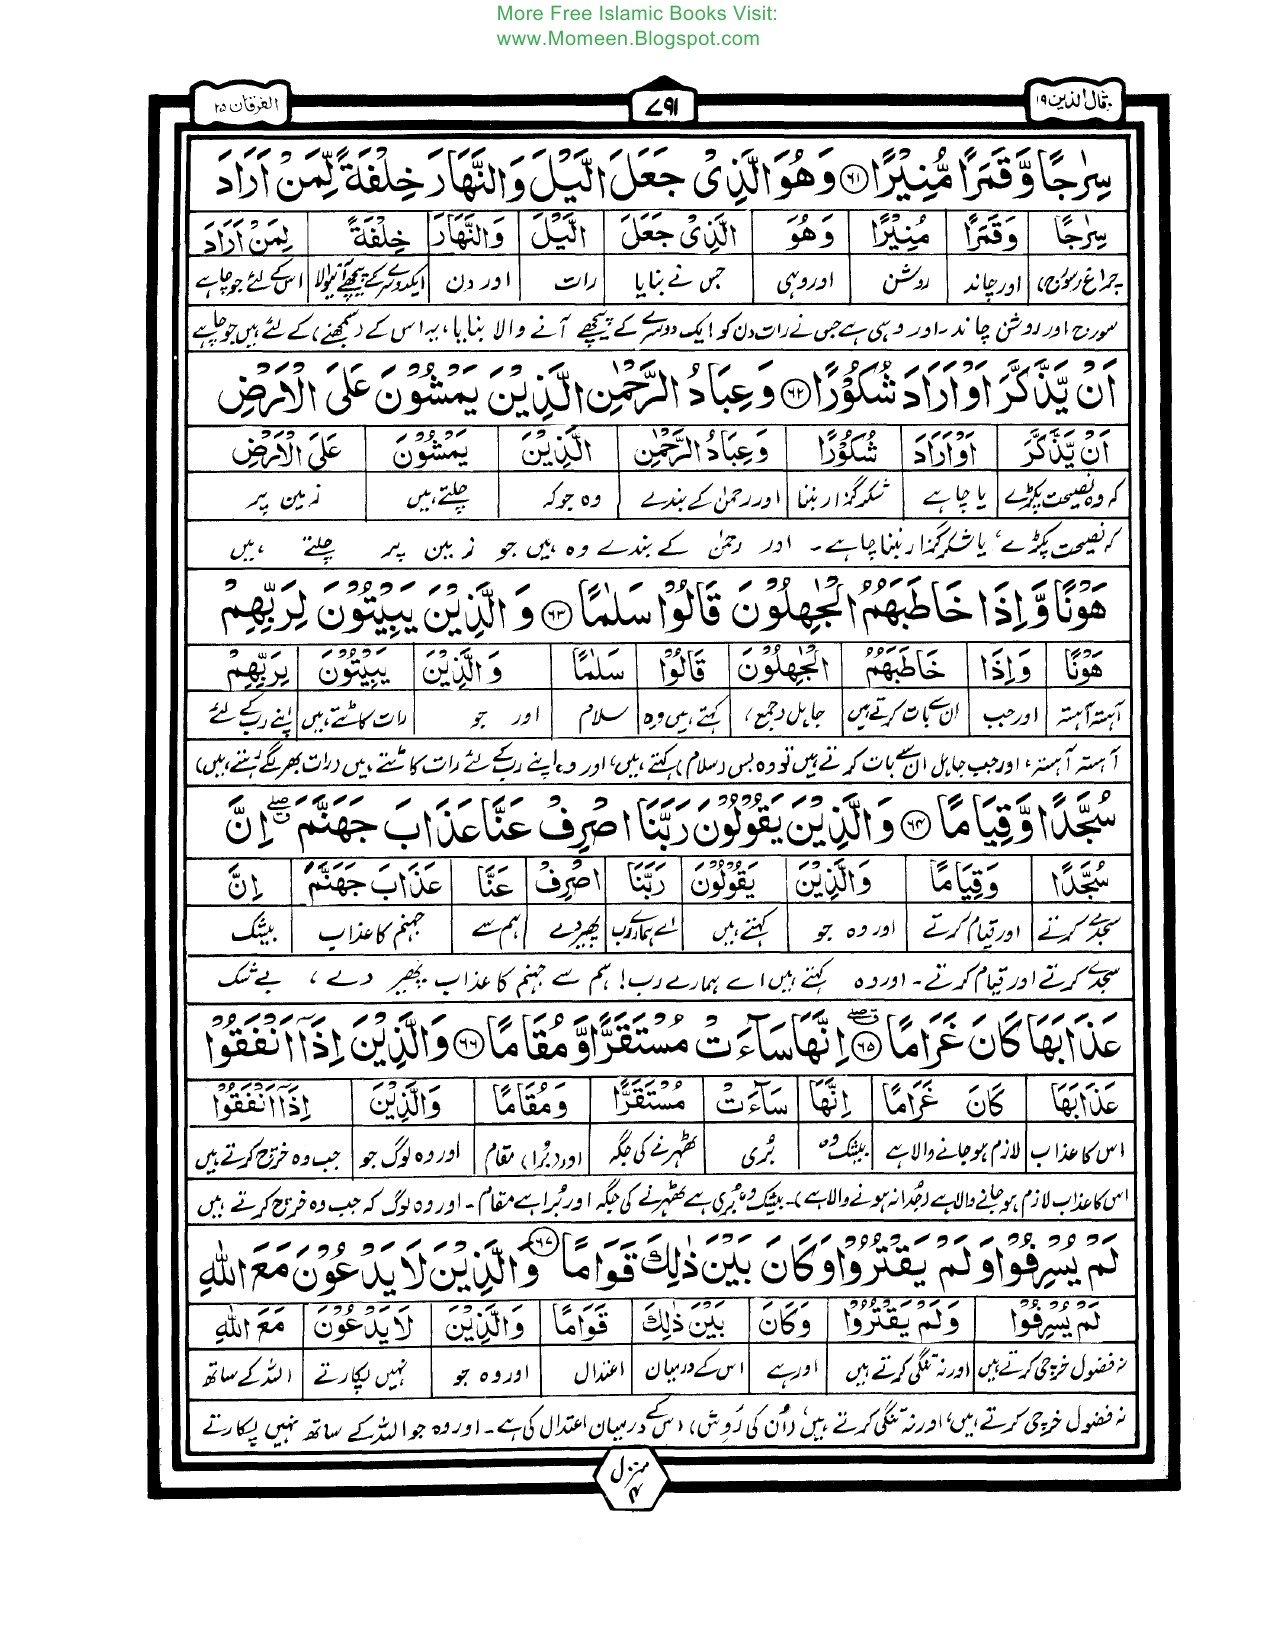 More Free Islamic Books Visit:
www.Momeen.Blogspot.com
وقال الذین ۱۹
۷۹۱
الفرقان ۲۵
سِرٰجًا وَّقَمَرًا مُّنِيْرًا ۶۱ وَهُوَ الَّذِىْ جَعَلَ الَّيْلَ وَالنَّهَارَ خِلْفَةً لِّمَنْ اَرَادَ
سِرٰجًا وَقَمَرًا مُنِيْرًا وَهُوَ الَّذِىْ جَعَلَ الَّيْلَ وَالنَّهَارَ خِلْفَةً لِمَنْ اَرَادَ
چراغ (سورج) اور چاند روشن اور وہی جس نے بنایا رات اور دن ایک دوسرے کے پیچھے آنیوالا اس کے لئے جو چاہے
سورج اور روشن چاند۔ اور وہی ہے جس نے رات دن کو ایک دوسرے کے پیچھے آنے والا بنایا، یہ اس کے (سمجھنے) کے لئے ہیں جو چاہے
اَنْ يَّذَّكَّرَ اَوْ اَرَادَ شُكُوْرًا ۶۲ وَعِبَادُ الرَّحْمٰنِ الَّذِيْنَ يَمْشُوْنَ عَلَى الْاَرْضِ
اَنْ يَّذَّكَّرَ اَوْ اَرَادَ شُكُوْرًا وَعِبَادُ الرَّحْمٰنِ الَّذِيْنَ يَمْشُوْنَ عَلَى الْاَرْضِ
کہ وہ نصیحت پکڑے یا چاہے شکر گزار بننا اور رحمٰن کے بندے وہ جو کہ چلتے ہیں زمین پر
کہ نصیحت پکڑے، یا شکر گزار بننا چاہے۔ اور رحمٰن کے بندے وہ ہیں جو زمین پر چلتے ہیں
هَوْنًا وَّاِذَا خَاطَبَهُمُ الْجٰهِلُوْنَ قَالُوْا سَلٰمًا ۶۳ وَالَّذِيْنَ يَبِيْتُوْنَ لِرَبِّهِمْ
هَوْنًا وَاِذَا خَاطَبَهُمُ الْجٰهِلُوْنَ قَالُوْا سَلٰمًا وَالَّذِيْنَ يَبِيْتُوْنَ لِرَبِّهِمْ
آہستہ آہستہ اور جب ان سے بات کرتے ہیں جاہل (جمع) کہتے ہیں وہ سلام اور جو رات کاٹتے ہیں اپنے رب کے لئے
آہستہ آہستہ، اور جب جاہل ان سے بات کرتے ہیں تو وہ بس (سلام) کہتے ہیں، اور وہ اپنے رب کے لئے رات کاٹتے ہیں (رات بھر لگے رہتے ہیں)
سُجَّدًا وَّقِيَامًا ۶۴ وَالَّذِيْنَ يَقُوْلُوْنَ رَبَّنَا اصْرِفْ عَنَّا عَذَابَ جَهَنَّمَ اِنَّ
سُجَّدًا وَقِيَامًا وَالَّذِيْنَ يَقُوْلُوْنَ رَبَّنَا اصْرِفْ عَنَّا عَذَابَ جَهَنَّمَ اِنَّ
سجدے کرتے اور قیام کرتے اور وہ جو کہتے ہیں اے ہمارے رب پھیر دے ہم سے جہنم کا عذاب بیشک
سجدے کرتے اور قیام کرتے۔ اور وہ کہتے ہیں اے ہمارے رب! ہم سے جہنم کا عذاب پھیر دے، بے شک
عَذَابَهَا كَانَ غَرَامًا ۶۵ اِنَّهَا سَآءَتْ مُسْتَقَرًّا وَّمُقَامًا ۶۶ وَالَّذِيْنَ اِذَآ اَنْفَقُوْا
عَذَابَهَا كَانَ غَرَامًا اِنَّهَا سَآءَتْ مُسْتَقَرًّا وَمُقَامًا وَالَّذِيْنَ اِذَآ اَنْفَقُوْا
اس کا عذاب لازم ہو جانے والا ہے بیشک وہ بُری ٹھہرنے کی جگہ اور (بُرا) مقام اور وہ لوگ جو جب وہ خرچ کرتے ہیں
اس کا عذاب لازم ہو جانے والا ہے (جُدا نہ ہونے والا ہے)۔ بیشک وہ بُری ہے ٹھہرنے کی جگہ اور بُرا ہے مقام۔ اور وہ لوگ کہ جب وہ خرچ کرتے ہیں
لَمْ يُسْرِفُوْا وَلَمْ يَقْتُرُوْا وَكَانَ بَيْنَ ذٰلِكَ قَوَامًا ۶۷ وَالَّذِيْنَ لَا يَدْعُوْنَ مَعَ اللّٰهِ
لَمْ يُسْرِفُوْا وَلَمْ يَقْتُرُوْا وَكَانَ بَيْنَ ذٰلِكَ قَوَامًا وَالَّذِيْنَ لَا يَدْعُوْنَ مَعَ اللّٰهِ
نہ فضول خرچی کرتے ہیں اور نہ تنگی کرتے ہیں اور ہے اس کے درمیان اعتدال اور وہ جو نہیں پکارتے اللہ کے ساتھ
نہ فضول خرچی کرتے ہیں، اور نہ تنگی کرتے ہیں (اُن کی رَوِش) اس کے درمیان اعتدال کی ہے۔ اور وہ جو اللہ کے ساتھ نہیں پکارتے
منزل ۴